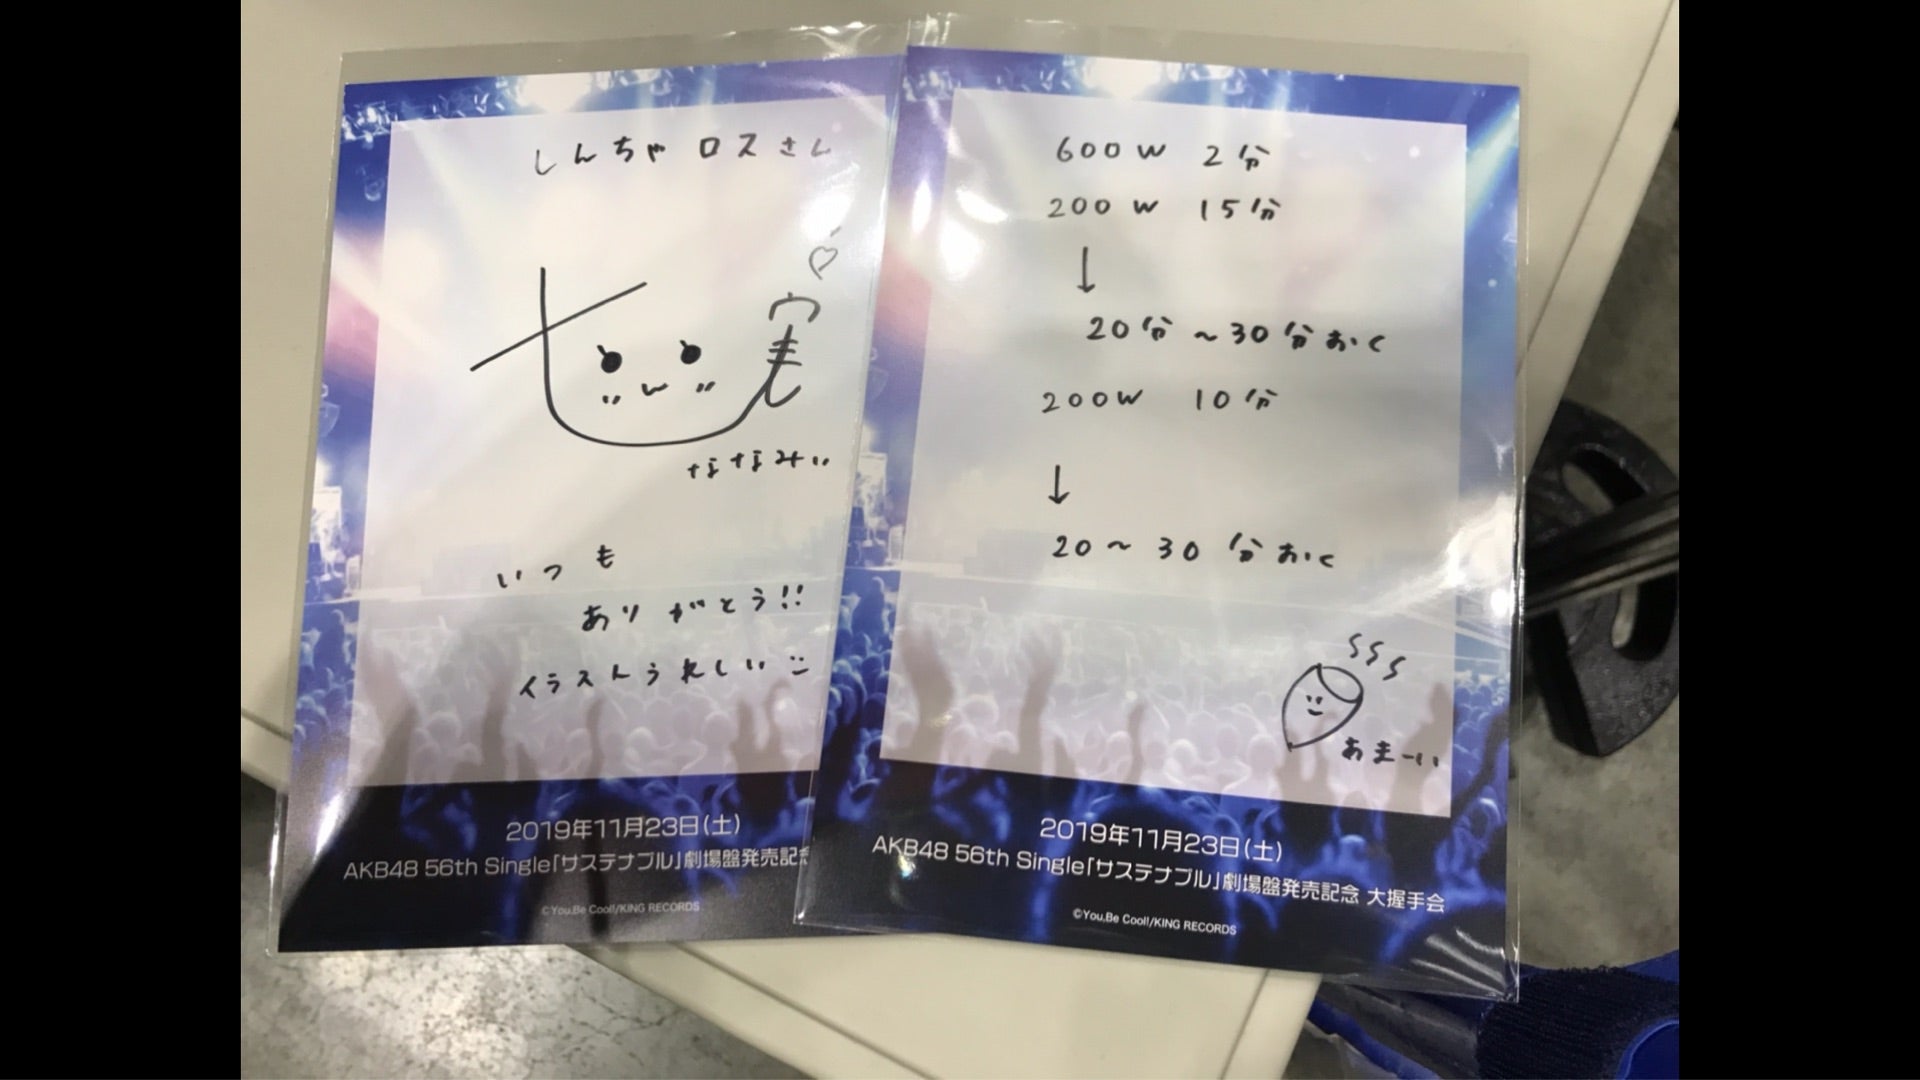 しんちゃロスさん
七実
ななみぃ
いつも
ありがとう!!
イラストうれしい
2019年11月23日(土)
AKB48 56th Single「サステナブル」劇場盤発売記念
©You,Be Cool!/KING RECORDS
600W 2分
200W 15分
↓
20分～30分おく
200W 10分
↓
20～30分おく
あまーい
2019年11月23日(土)
AKB48 56th Single「サステナブル」劇場盤発売記念 大握手会
©You,Be Cool!/KING RECORDS